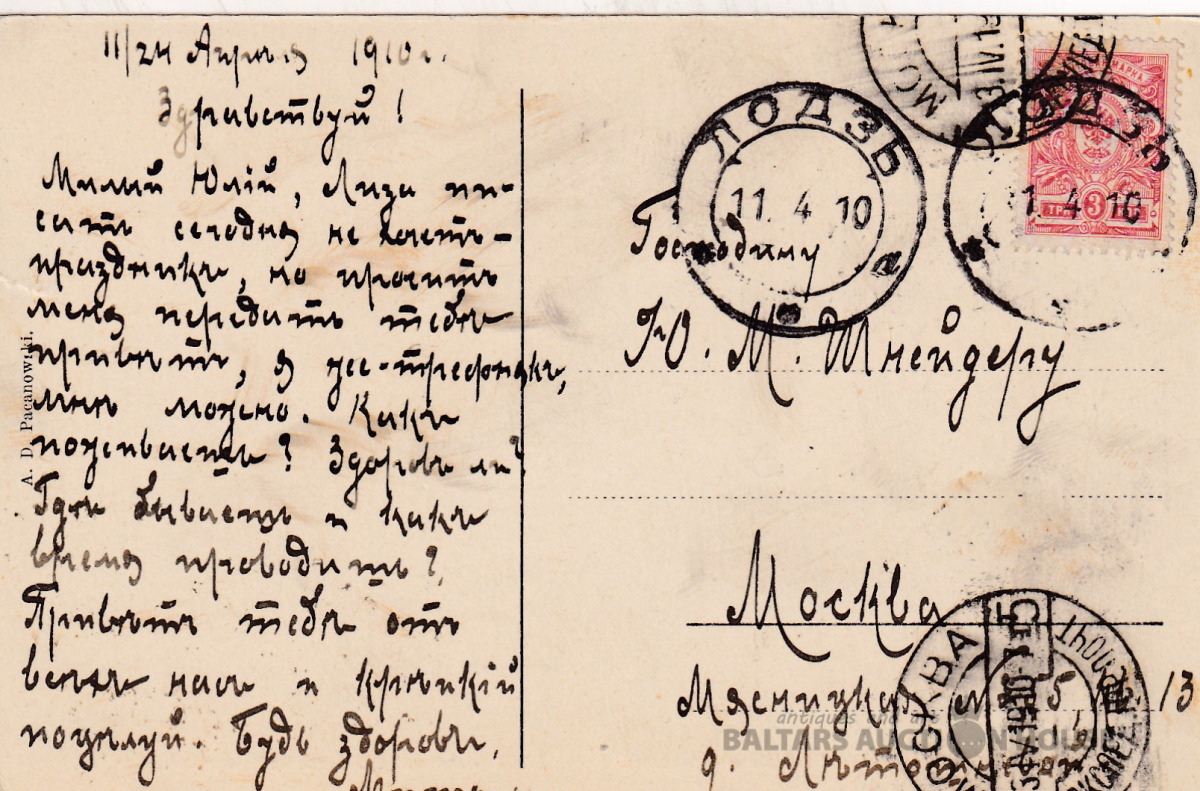 11/24 Апрѣля 1910 г.
Здравствуй!
Милый Юлій, Лиза пи-
сать сегодня не хочетъ -
праздникъ, но проситъ
меня передать тебѣ
привѣтъ, я же
мнѣ можно. Какъ
поживаешь? Здоровъ ли?
Гдѣ бываешь и какъ
время проводишь?
Привѣтъ тебѣ отъ
всѣхъ насъ и крѣпкій
поцѣлуй. Будь здоровъ,
A. D. Pacanowski.
ЛОДЗЬ
11 4 10
ЛОДЗЬ
11 4 10
МОС
МАРКА
ТРИ 3
Господину
Ю. М. Шнейдеру
Москва
Мясницкая 5, 13
д.
МОСКВА
antiques and
BALTARS AUCTION HOUSE